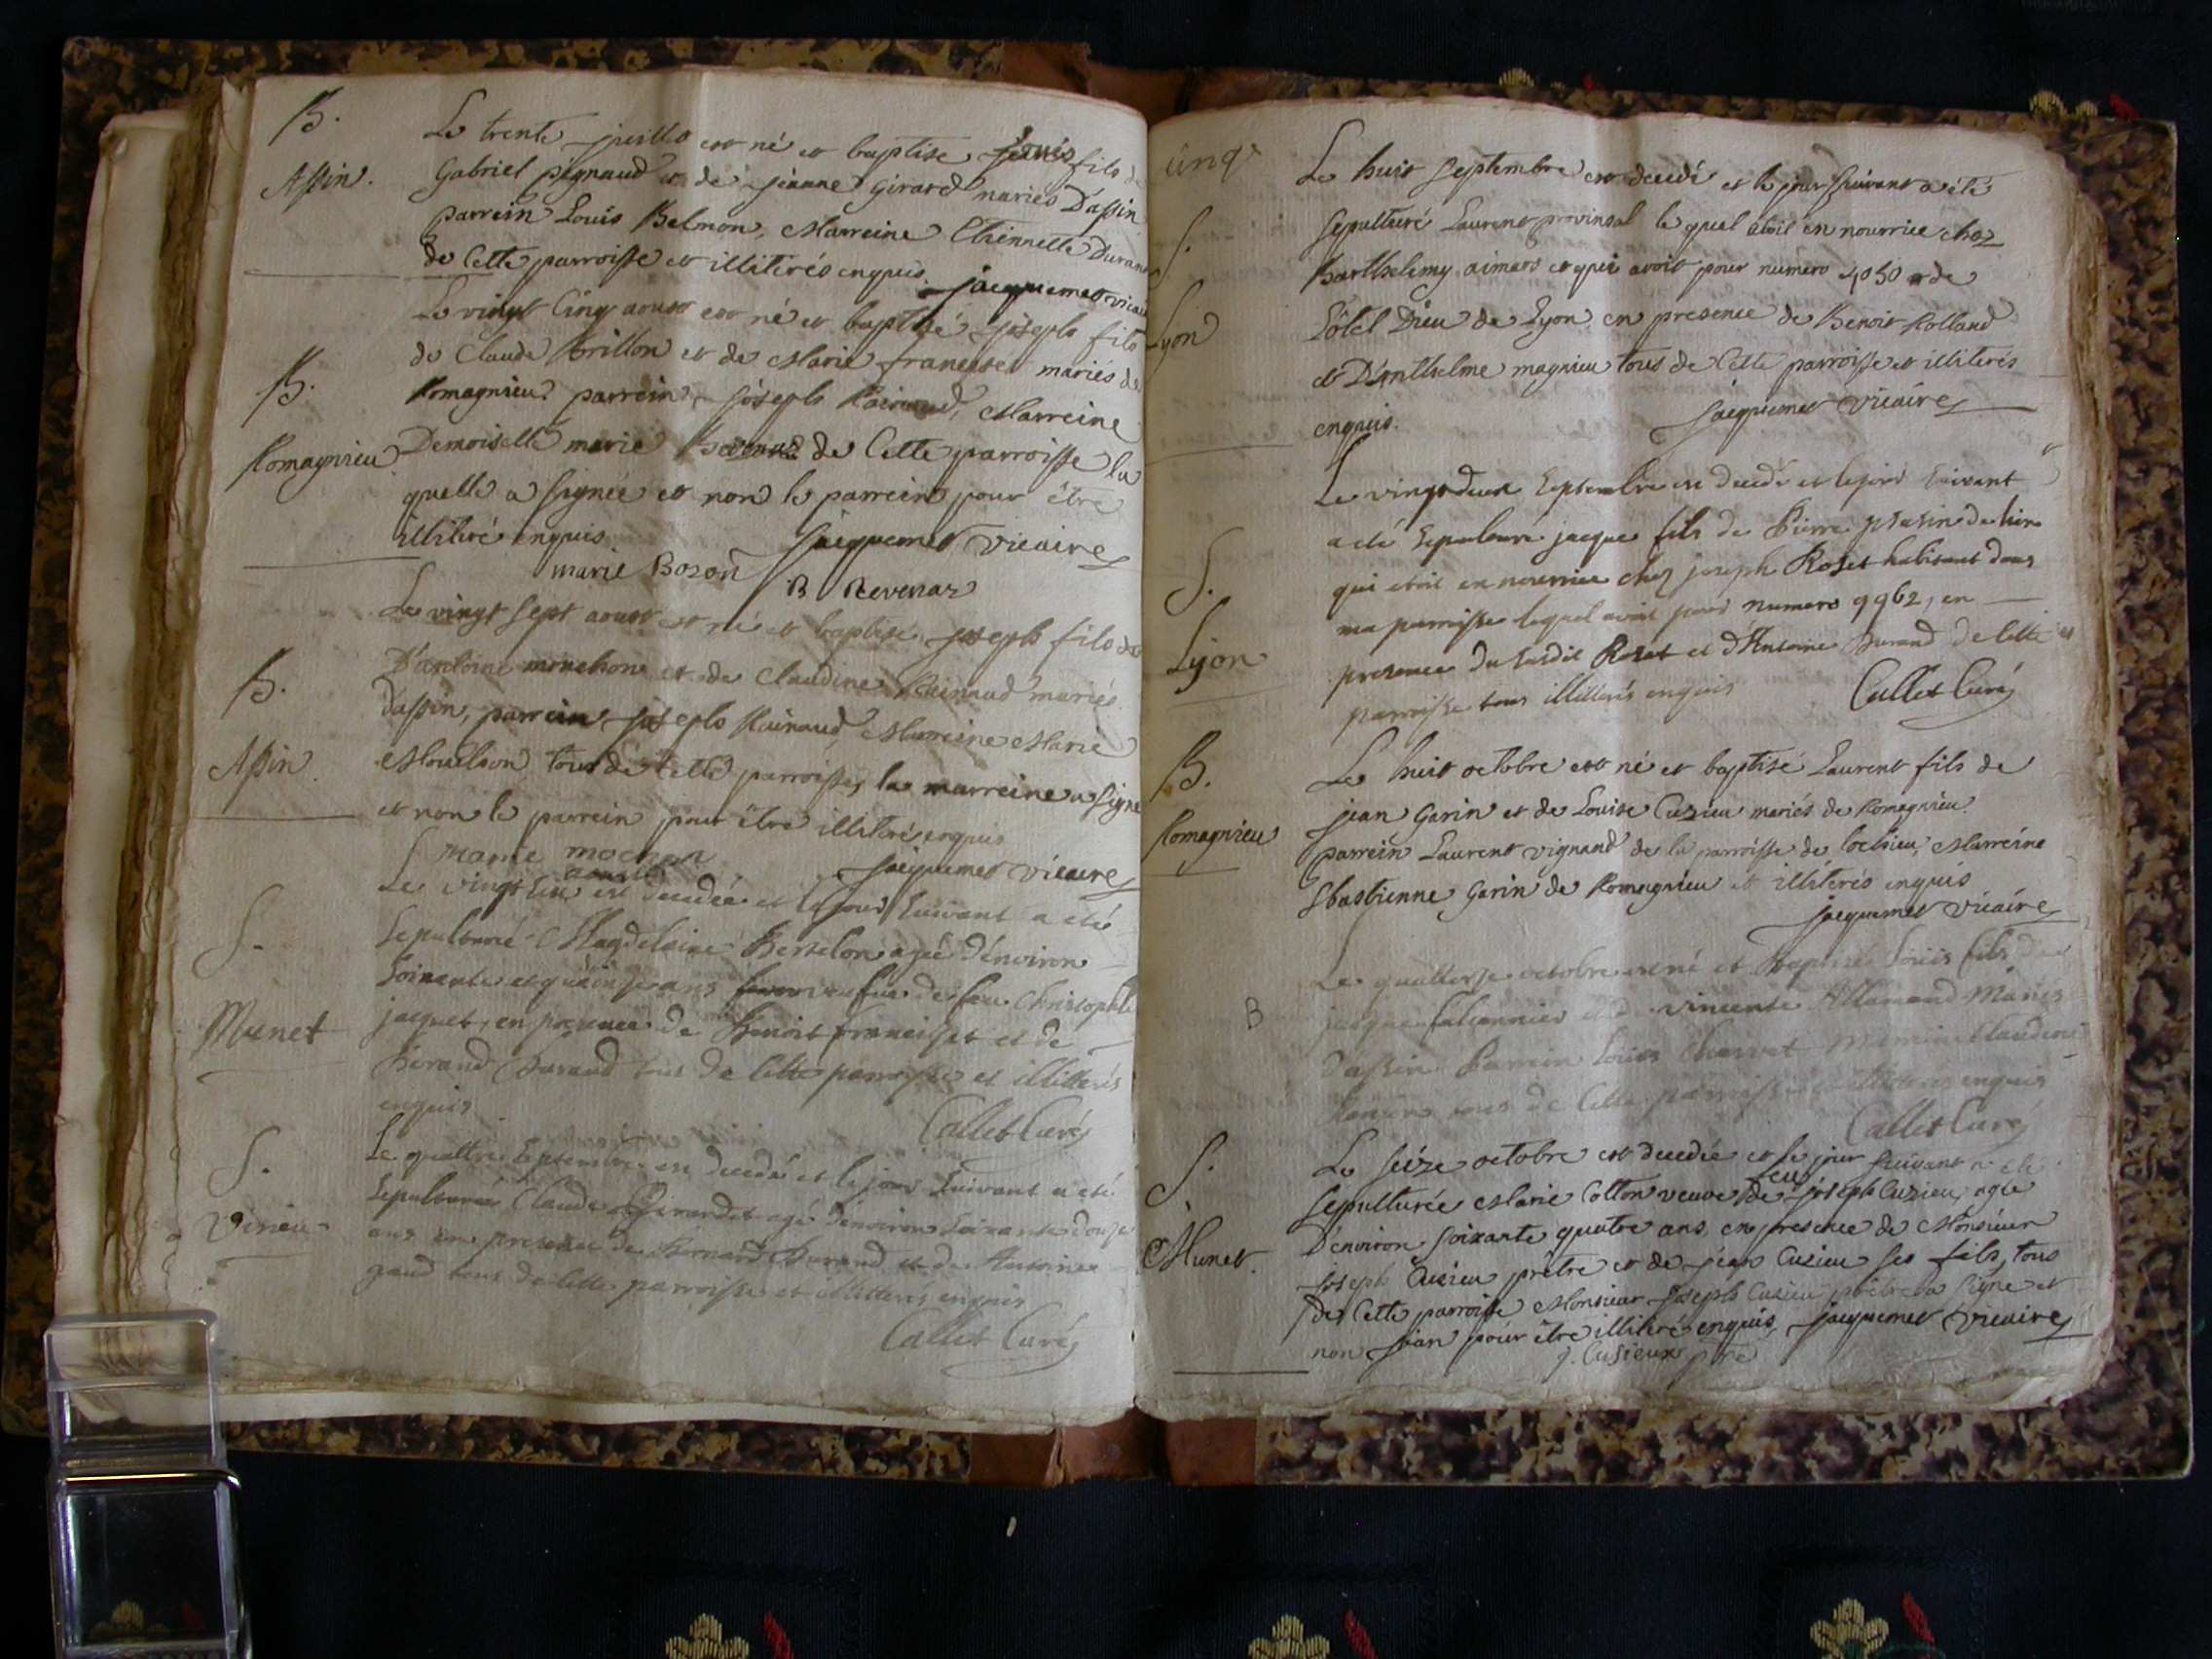 B.
Assin.
Le trente juillet est né et baptisé Louis fils de
Gabriel pignaud et de jeanne Girard mariés D'assin
parrein Louis Belmon, Marreine Etiennette Durand
de Cette parroisse et illitérés enquis. jacquemet vicai
B.
Romagnieu
Le vingt Cinq aoust est né et baptisé joseph fils
de Claude Brillon et de Marie francise mariés de
Romagnieu parrein joseph Rainaud, Marreine
Demoiselle marie de Cette parroisse la
quelle a signée et non le parrein pour être
illitéré enquis jacquemet vicaire
marie Bozon B Revenaz
B.
Assin.
Le vingt sept aoust est né et baptisé joseph fils de
D'antoine monchon et de Claudine Rainaud mariés
d'assin, parrein joseph Rainaud, Marreine Marie
Mouchon tous de Cette parroisse, la marreine a signé
et non le parrein pour être illitéré enquis
marie mochon jacquemet vicaire
S.
Munet
aoust
Le vingt est decedée et le jour suivant a été
sepulturé Magdeleine Berthelon agée d'environ
soixante et quinse ans veufue de feu Christophle
jacquet, en presence de Benoit francillet et de
Durand tous de Cette parroisse et illitterés
enquis
Callet Curé
S.
Virieu
Le quattre septembre est decedé et le jour suivant a eté
sepulturé Claude Girardet agé d'environ soixante douze
ans en presence de Bernard Durand et de Antoine
gaud tous de Cette parroisse et illitterés enquis
Callet Curé
cinq
S.
Lyon
Le huit septembre est decedé et le jour suivant a été
sepulturé Laurent provinsal le quel étoit en nourrice chez
Barthelemy aimars et qui avoit pour numero 4050 de
L'ôtel Dieu de Lyon en presence de Benoit Rolland
et D'Anthelme magnieu tous de Cette parroisse et illiterés
enquis. jacquemet vicaire
S.
Lyon
Le vingt deux septembre est decedé et le jour suivant
a été sepulturé jacque fils de Pierre
qui etoit en nourrice chez joseph Roset habitant dans
ma parroisse lequel avoit pour numero 9962, en
presence du susdit Roset et d'Antoine Durand de Cette
parroisse tous illitterés enquis Callet Curé
B.
Romagnieu
Le huit octobre est né et baptisé Laurent fils de
jean Garin et de Louise Cusieu mariés de Romagnieu
parrein Laurent vignand de la parroisse de lochieu, Marreine
Sbastienne Garin de Romagnieu et illitérés enquis
jacquemet vicaire
B
Le quattorse octobre est né et Baptisé Louis fils de
jacque et de vincente Allamand Mariés
D'assin Parrein Louis Charvet Marreine Claudine
tous de Cette parroisse et illitterés enquis
Callet Curé
S.
Munet.
Le seize octobre est decedée et le jour suivant a été
sepulturée Marie Cotton veuve de feu joseph Cusieu, agée
D'environ soixante quatre ans, en presence de Monsieur
joseph Cusieu prêtre et de jean Cusieu ses fils, tous
de Cette parroisse Monsieur joseph Cusieu prêtre a signé et
non jean pour être illiteré enquis, jacquemet vicaire
j. Cusieux ptre